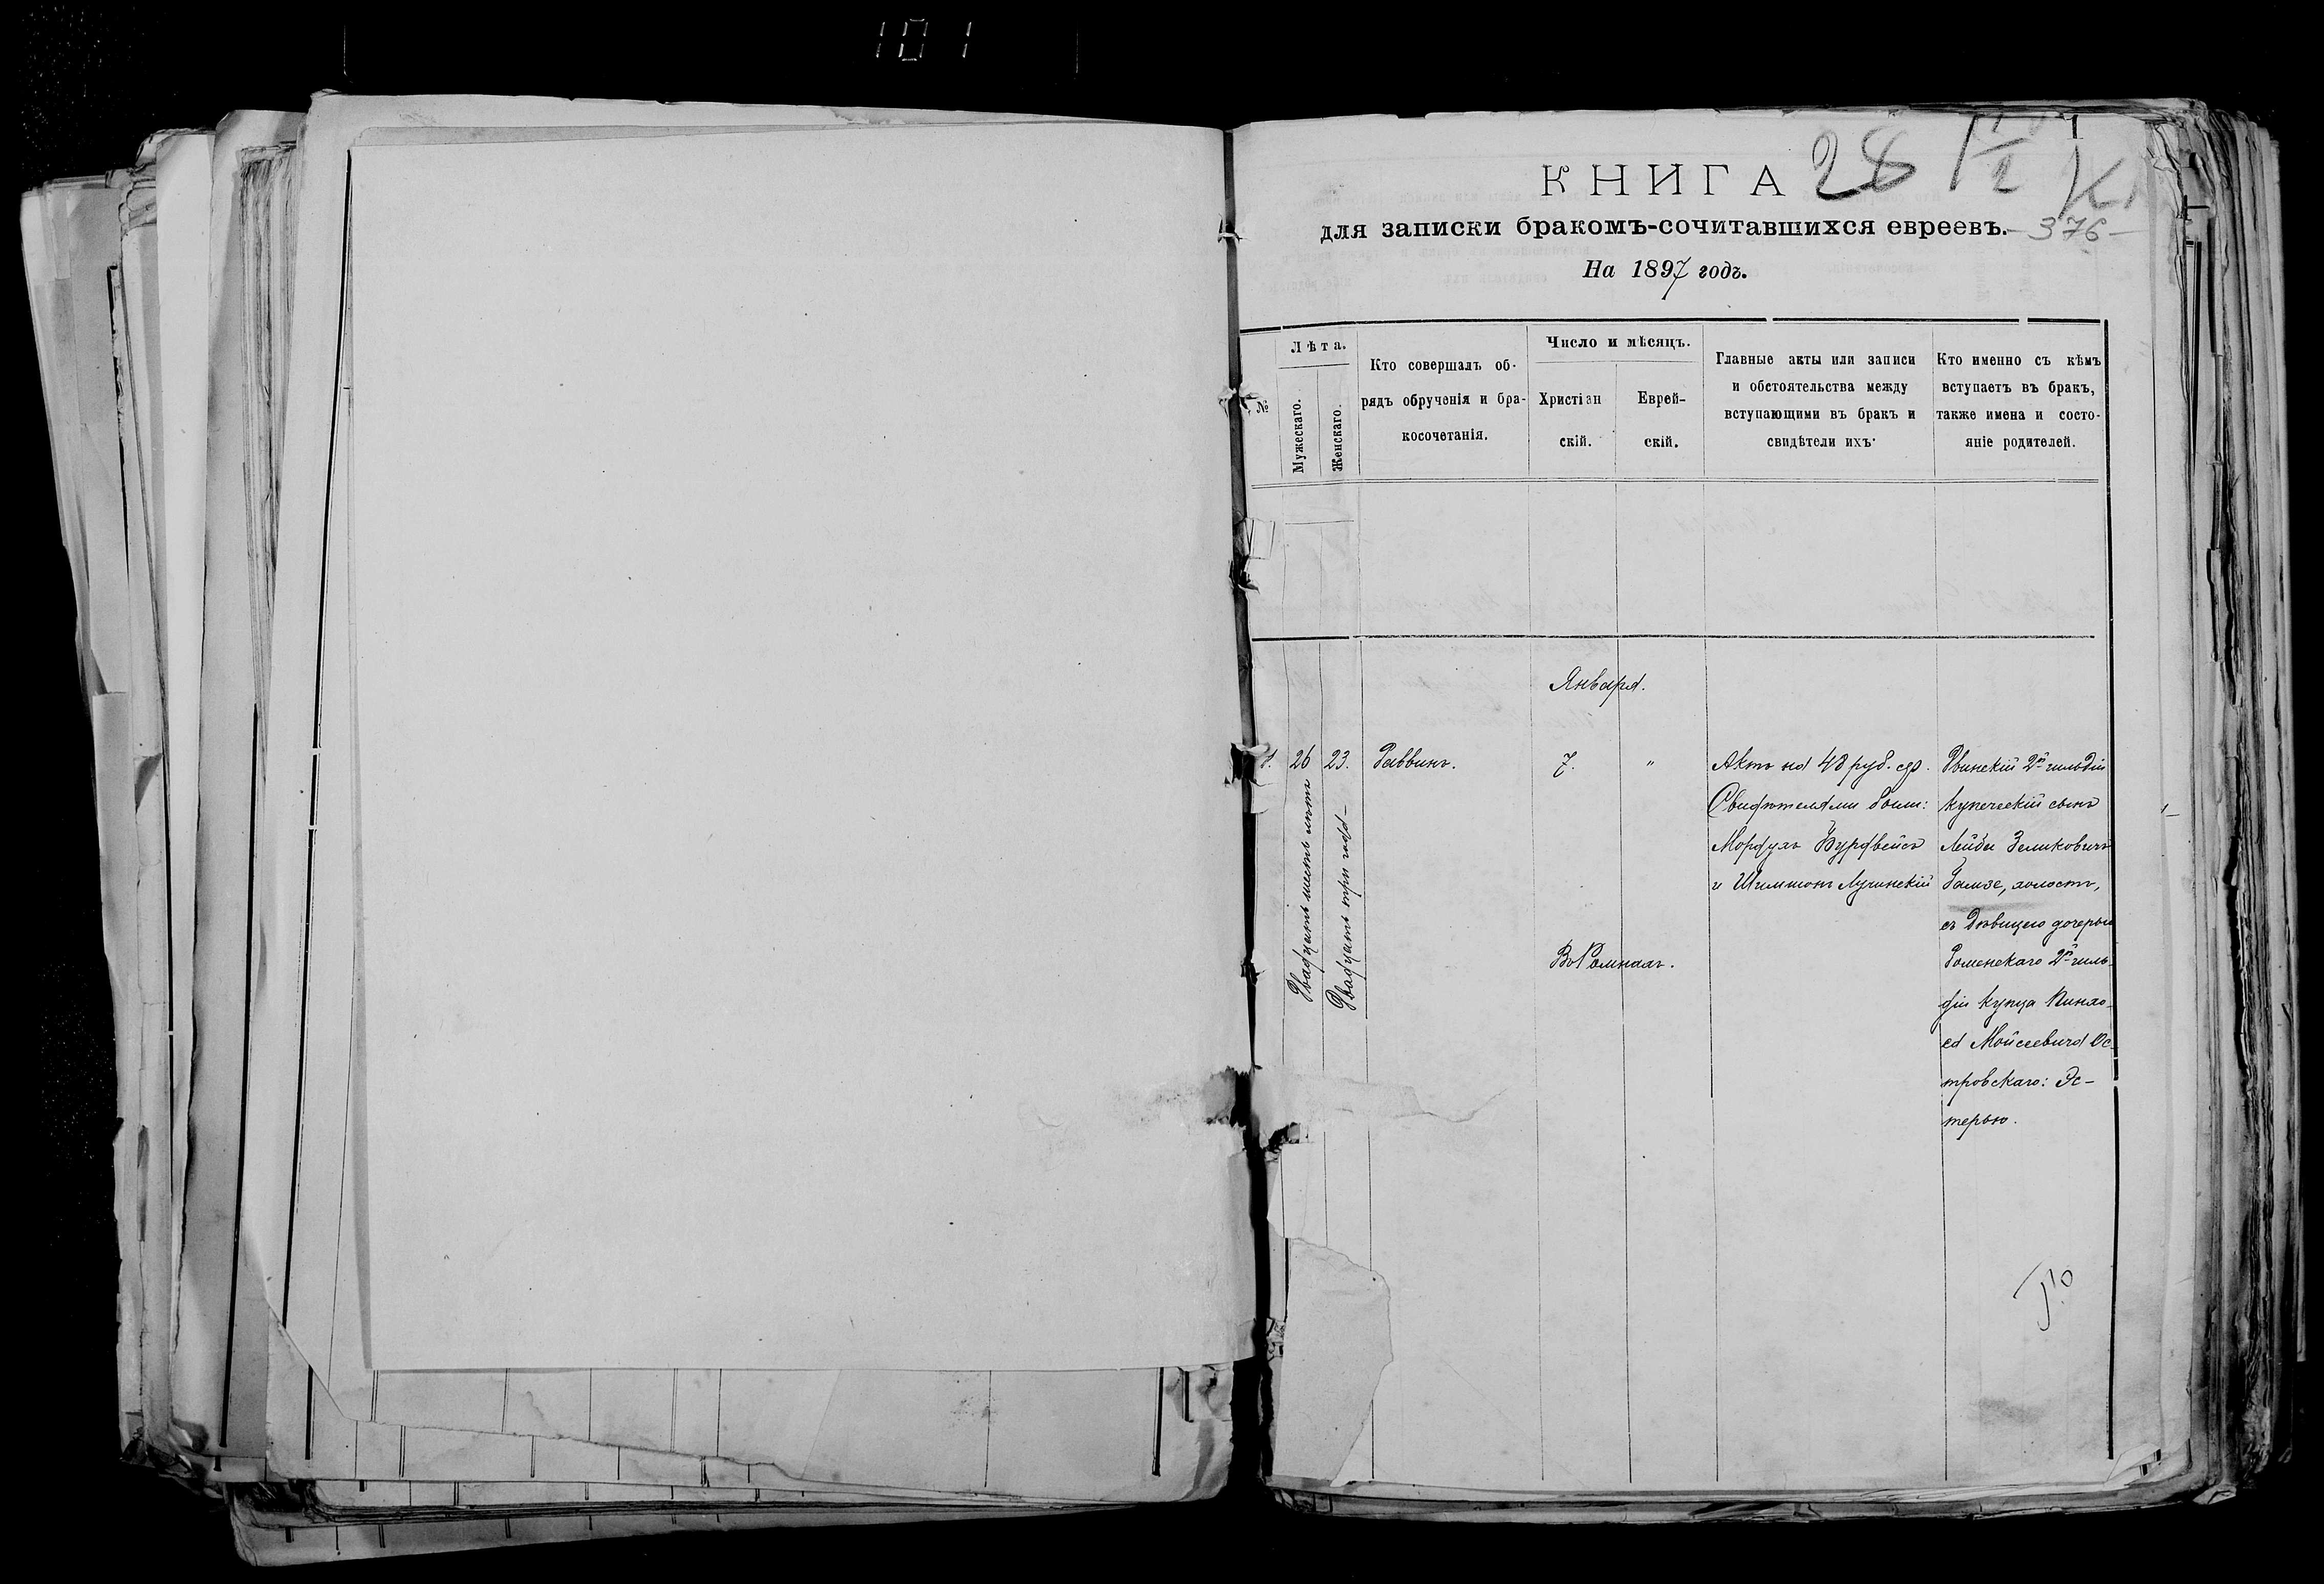 101
КНИГА 28
для записки бракомъ-сочитавшихся евреевъ. - 376 -
На 1897 годъ.
№
Лѣта.
Мужескаго.
Женскаго.
Кто совершалъ об-
рядъ обрученія и бра-
косочетанія.
Число и мѣсяцъ.
Христіан
скій.
Еврей-
скій.
Главные акты или записи
и обстоятельства между
вступающими въ бракъ и
свидѣтели ихъ.
Кто именно съ кѣмъ
вступаетъ въ бракъ,
также имена и состо-
яніе родителей.
Января.
1.
26
Двадцать шесть лѣтъ
23.
Двадцать три года -
Раввинъ.
7.
"
Въ Ромнахъ.
Актъ на 48 руб. сер.
Свидѣтелями были:
Мордухъ Бурдвейсъ
и Шимшонъ Лучинскій
Двинскій 2й гильдіи
купеческій сынъ
Лейбъ Зеликовичъ
Рамзе, холостъ,
съ дѣвицею дочерью
Роменскаго 2й гиль-
діи купца Пинхо-
са Мойсеевича Ос-
тровскаго: Эс-
терью.